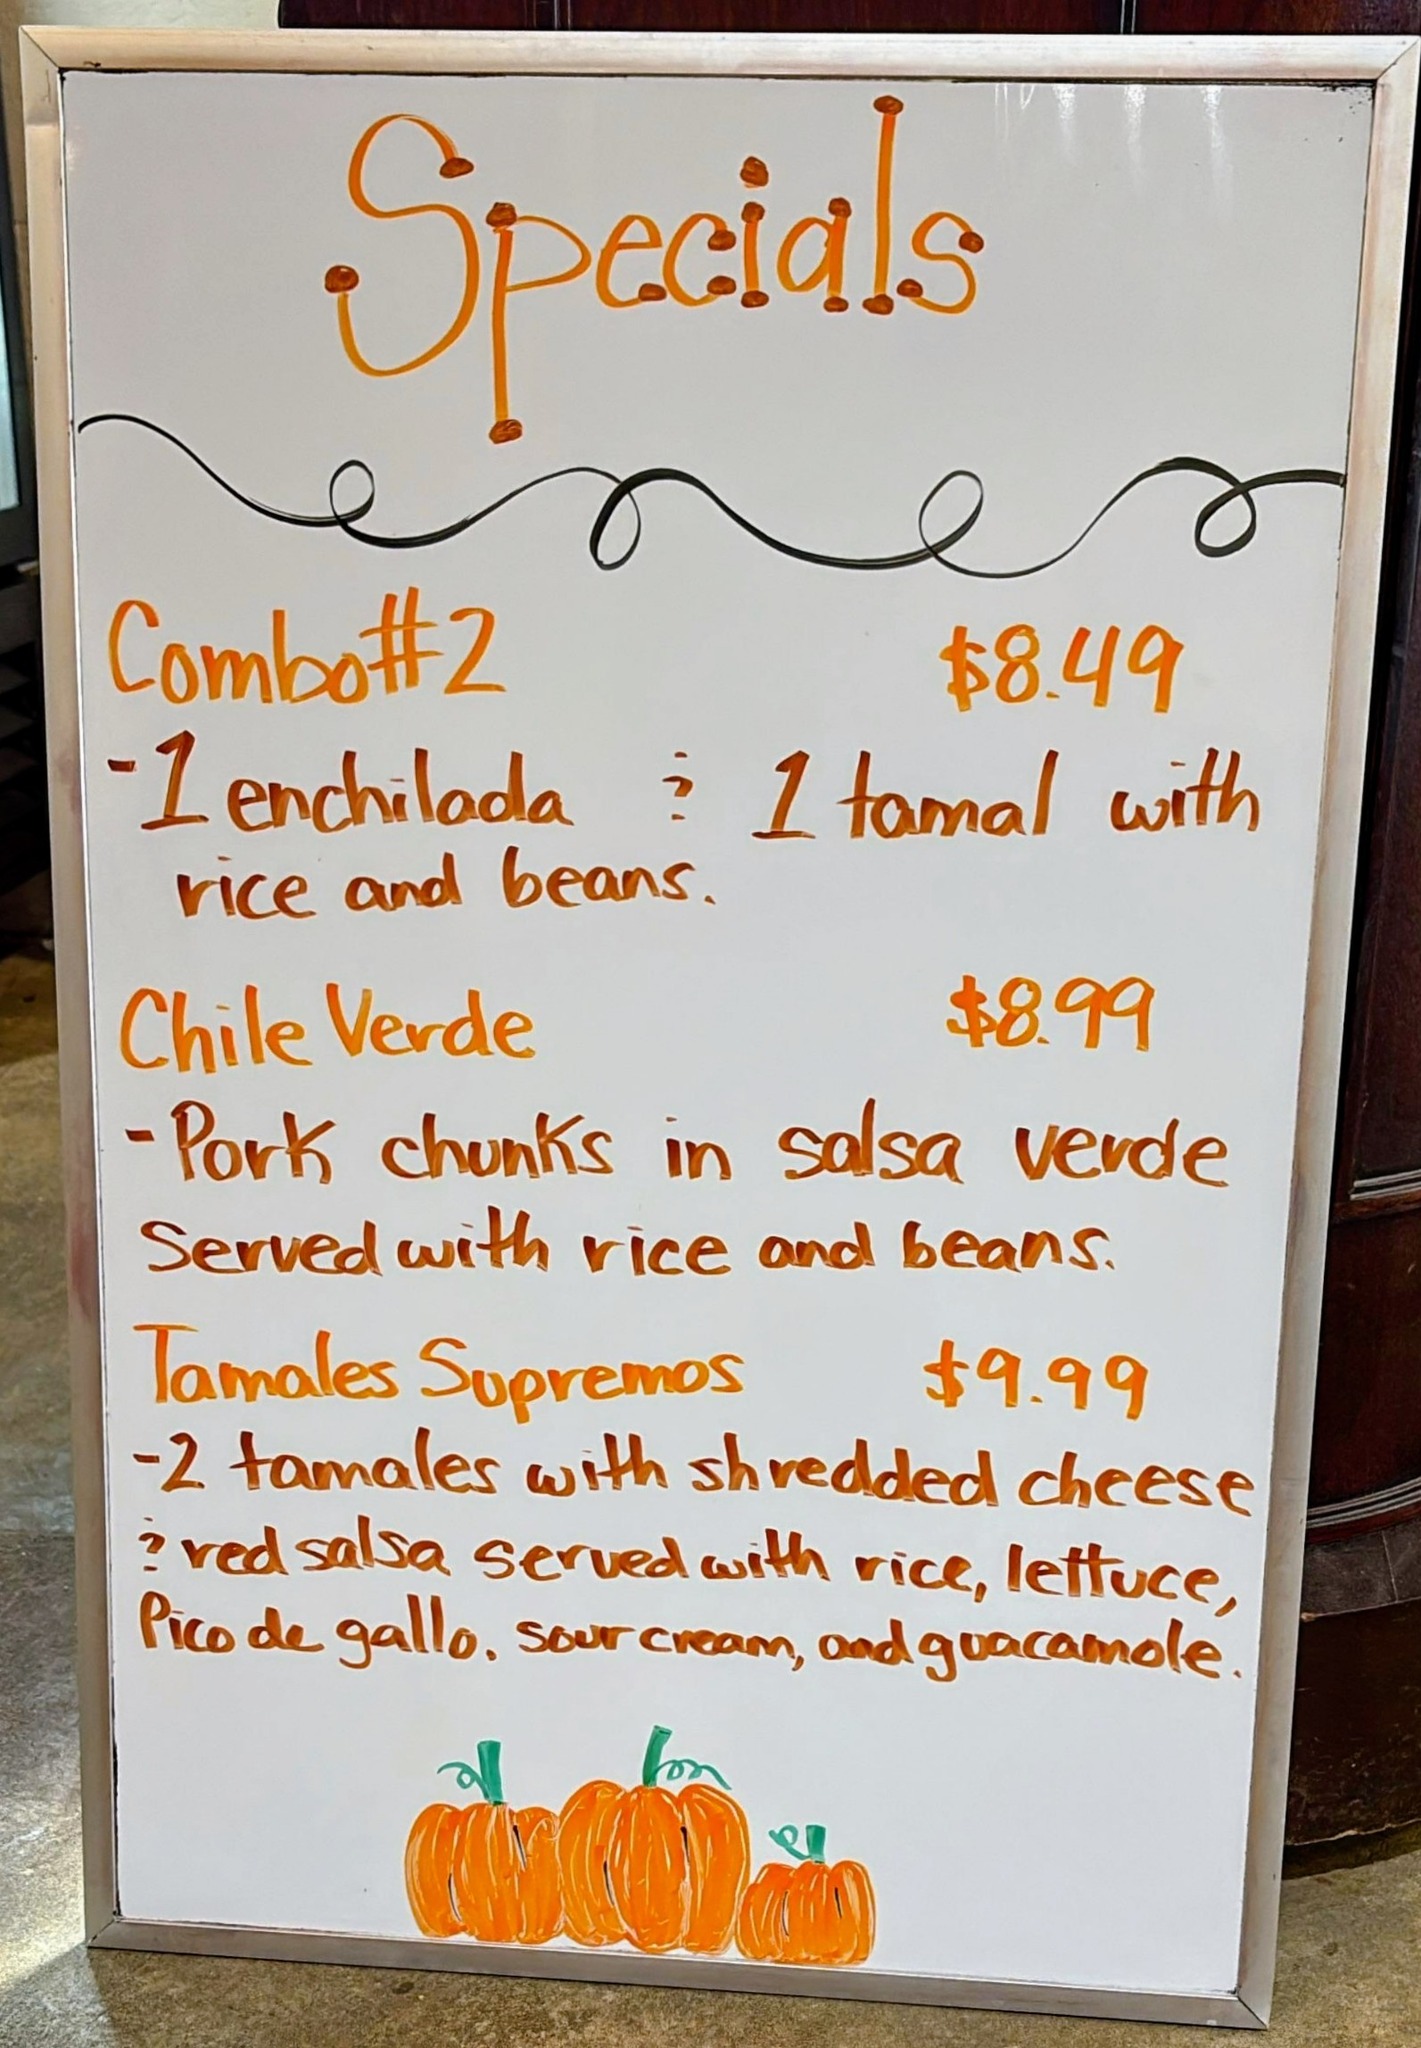 Specials
Combo#2 $8.49
-1 enchilada & 1 tamal with
rice and beans.
Chile Verde $8.99
-Pork chunks in salsa verde
Served with rice and beans.
Tamales Supremos $9.99
-2 tamales with shredded cheese
& red salsa served with rice, lettuce,
Pico de gallo. sour cream, and guacamole.